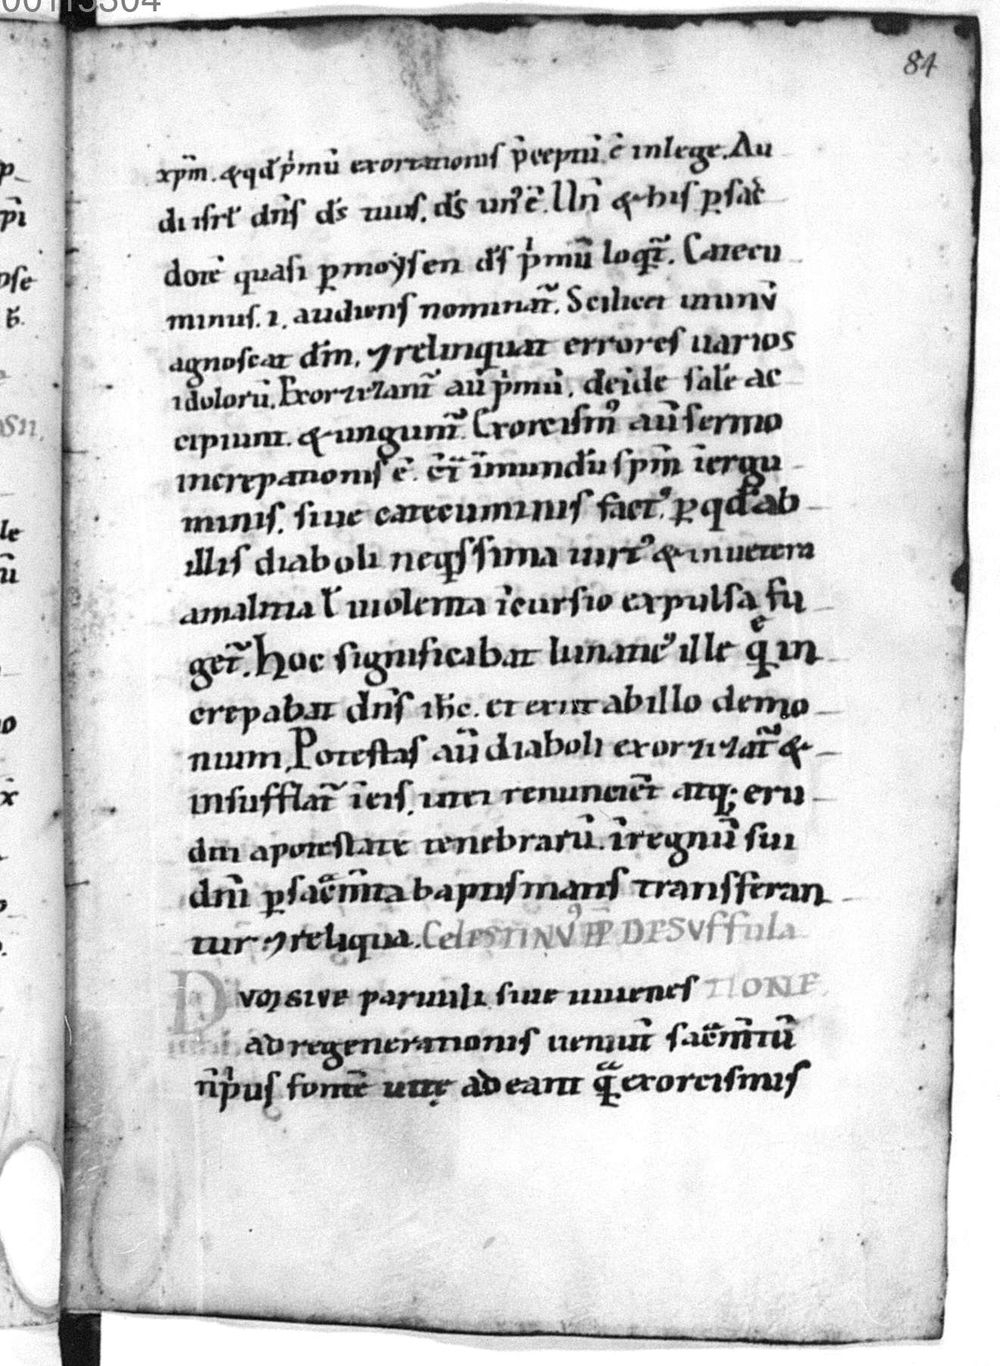 84
xp̄m. & qđ p̍mū exortationis p̄ceptū ē in lege. Au
di isrł dn̄s ds̄ tuus. ds̄ un᷒ ē. Un̄ & his p̱ sac̄
dotē quasi p̱ moẏsen ds̄ p̍mū loqr̄. Catecu
minus. i. audiens nominat̄. Scilicet ut unū
agnoscat dm̄. ⁊ relinquat errores uarios
idolorū. Exorzizant̄ aū p̍mū. deīde salē ac
cipiunt. & ungunt̄. Exorcism᷒ aū sermo
increpationis ē. ct̄ īmundū spm̄ īergu
minis. siue catecuminis fact᷒. p̱ qđ ab
illis diaboli neq̄ssima uirt᷒ & inuetera
ta malitia ł uiolenta īcursio expulsa fu
get̄. Hoc significabat lunatic᷒ ille quē in
crepabat dn̄s ih̄c. et exiit ab illo demo
nium. Potestas aū diaboli exorzizat̄ &
insufflat̄ ī eis. ut ei renuncient atq; eru
ti a potestate tenebrarū. ī regnū sui
dn̄i p̱ sac̄m̄ta baptismatis transferan
tur ⁊ reliqua. Celestinus PP DE Suffula
Dvo sive paruuli siue iuuenes TIONE.
ad regenerationis ueniunt sac̄m̄tū
n̄ p̍us fontē uitę adeant q̄ exorcismis